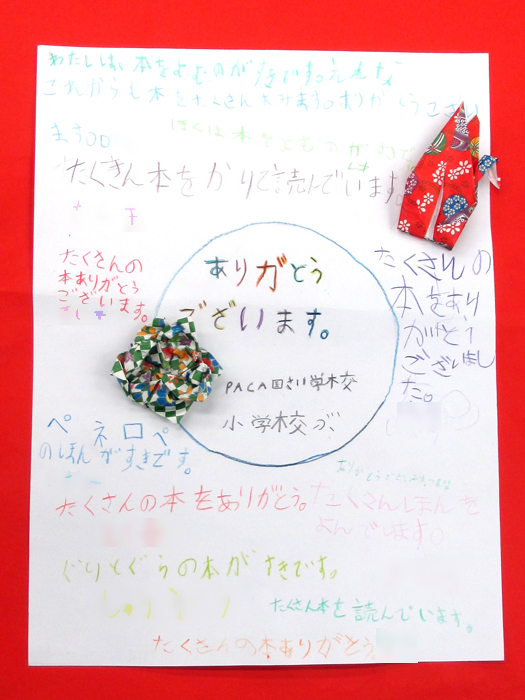 わたしは、本をよむのがすきです。
これからも本をたくさんよみます。ありがとうござい
ます。
ぼくは本をよむのがすきです
たくさん本をかりて読んでいます。
たくさんの
本ありがとう
ございます。
ありがとう
ございます。
PACA国さい学校
小学校ぶ
たくさんの
本をあり
がとう
ございまし
た。
ペネロペ
のほんがすきです。
たくさんの本をありがとう。
たくさんほんを
よんでします。
ぐりとぐらの本がすきです。
たくさん本を読んでいます。
たくさんの本ありがとう